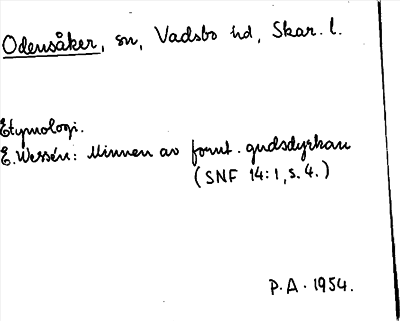 Odensåker, sn, Vadsbo hd, Skar. l.
Etymologi.
E. Wessén: Minnen av fornt. gudsdyrkan
(SNF 14:1, s. 4.)
P.A. 1954.